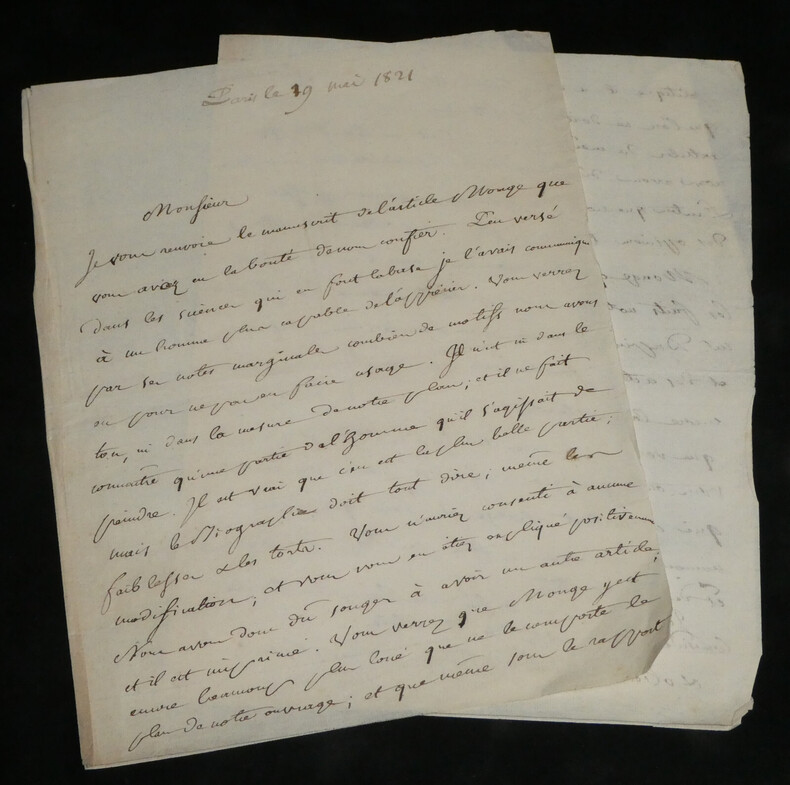 Paris le 29 mai 1821
Monsieur
Je vous renvoie le manuscrit de l'article Monge que
vous aviez eu la bonté de nous confier. Peu versé
dans les sciences qui en font la base je l'avais communiqué
à un homme plus capable de l'apprécier. Vous verrez
par ses notes marginales combien de motifs nous avons
eu pour ne pas en faire usage. Il n'est ni dans le
ton, ni dans la mesure de notre plan; et il ne fait
connaître qu'une partie de l'homme qu'il s'agissait de
peindre. Il est vrai que c'en est la plus belle partie;
mais le Biographe doit tout dire, même les
faiblesses & les torts. Vous n'auriez consenti à aucune
modification, et vous vous en étiez expliqué positivement
Nous avons donc dû songer à avoir un autre article,
et il est imprimé. Vous verrez que Monge y est
encore beaucoup plus loué que ne le comporte le
plan de notre ouvrage; et que même sous le rapport